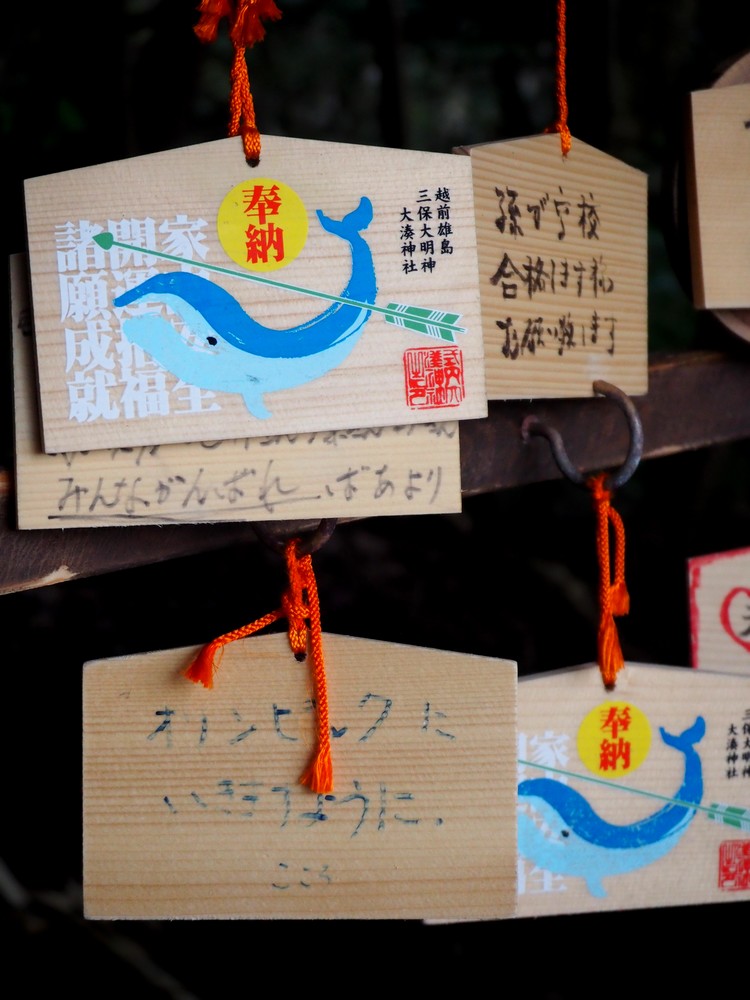 奉納
越前雄島
三保大明神
大湊神社
諸願成就
開運招福
家
全
孫が学校
合格します様
お願い致します
みんながんばれ ばあより
オリンピックに
いきますように。
こころ
奉納
家
全
大湊神社